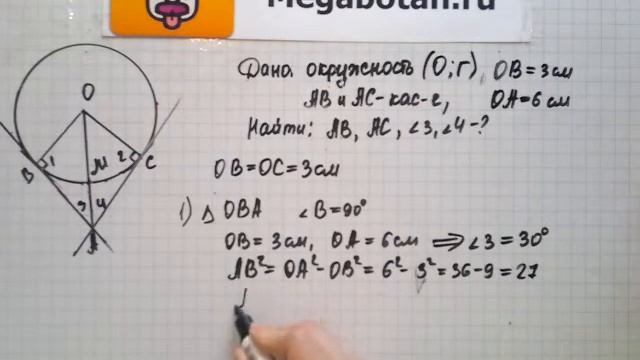 Megabotan.ru
Дана окружность (O; r), OB = 3 см
AB и AC - кас-е, OA = 6 см
Найти: AB, AC, ∠3, ∠4 - ?
OB = OC = 3 см
1) Δ OBA ∠B = 90°
OB = 3 см, OA = 6 см ⟹ ∠3 = 30°
AB² = OA² - OB² = 6² - 3² = 36 - 9 = 27
O
B 1 M 2 C
3 4
A